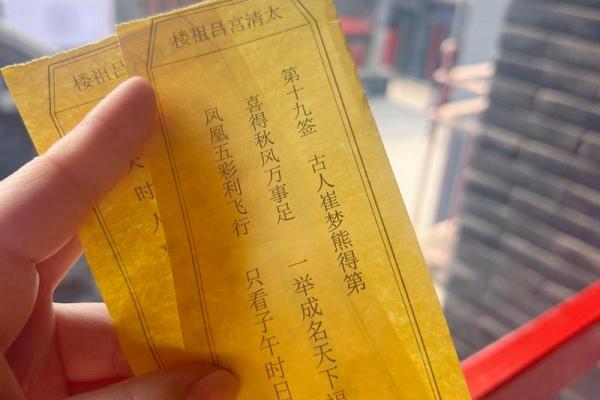 太清宫吕祖楼
第十九签 古人崔梦熊得第
喜得秋风万事足 一举成名天下
凤凰五彩利飞行 只看子午时日
吕祖楼
时人